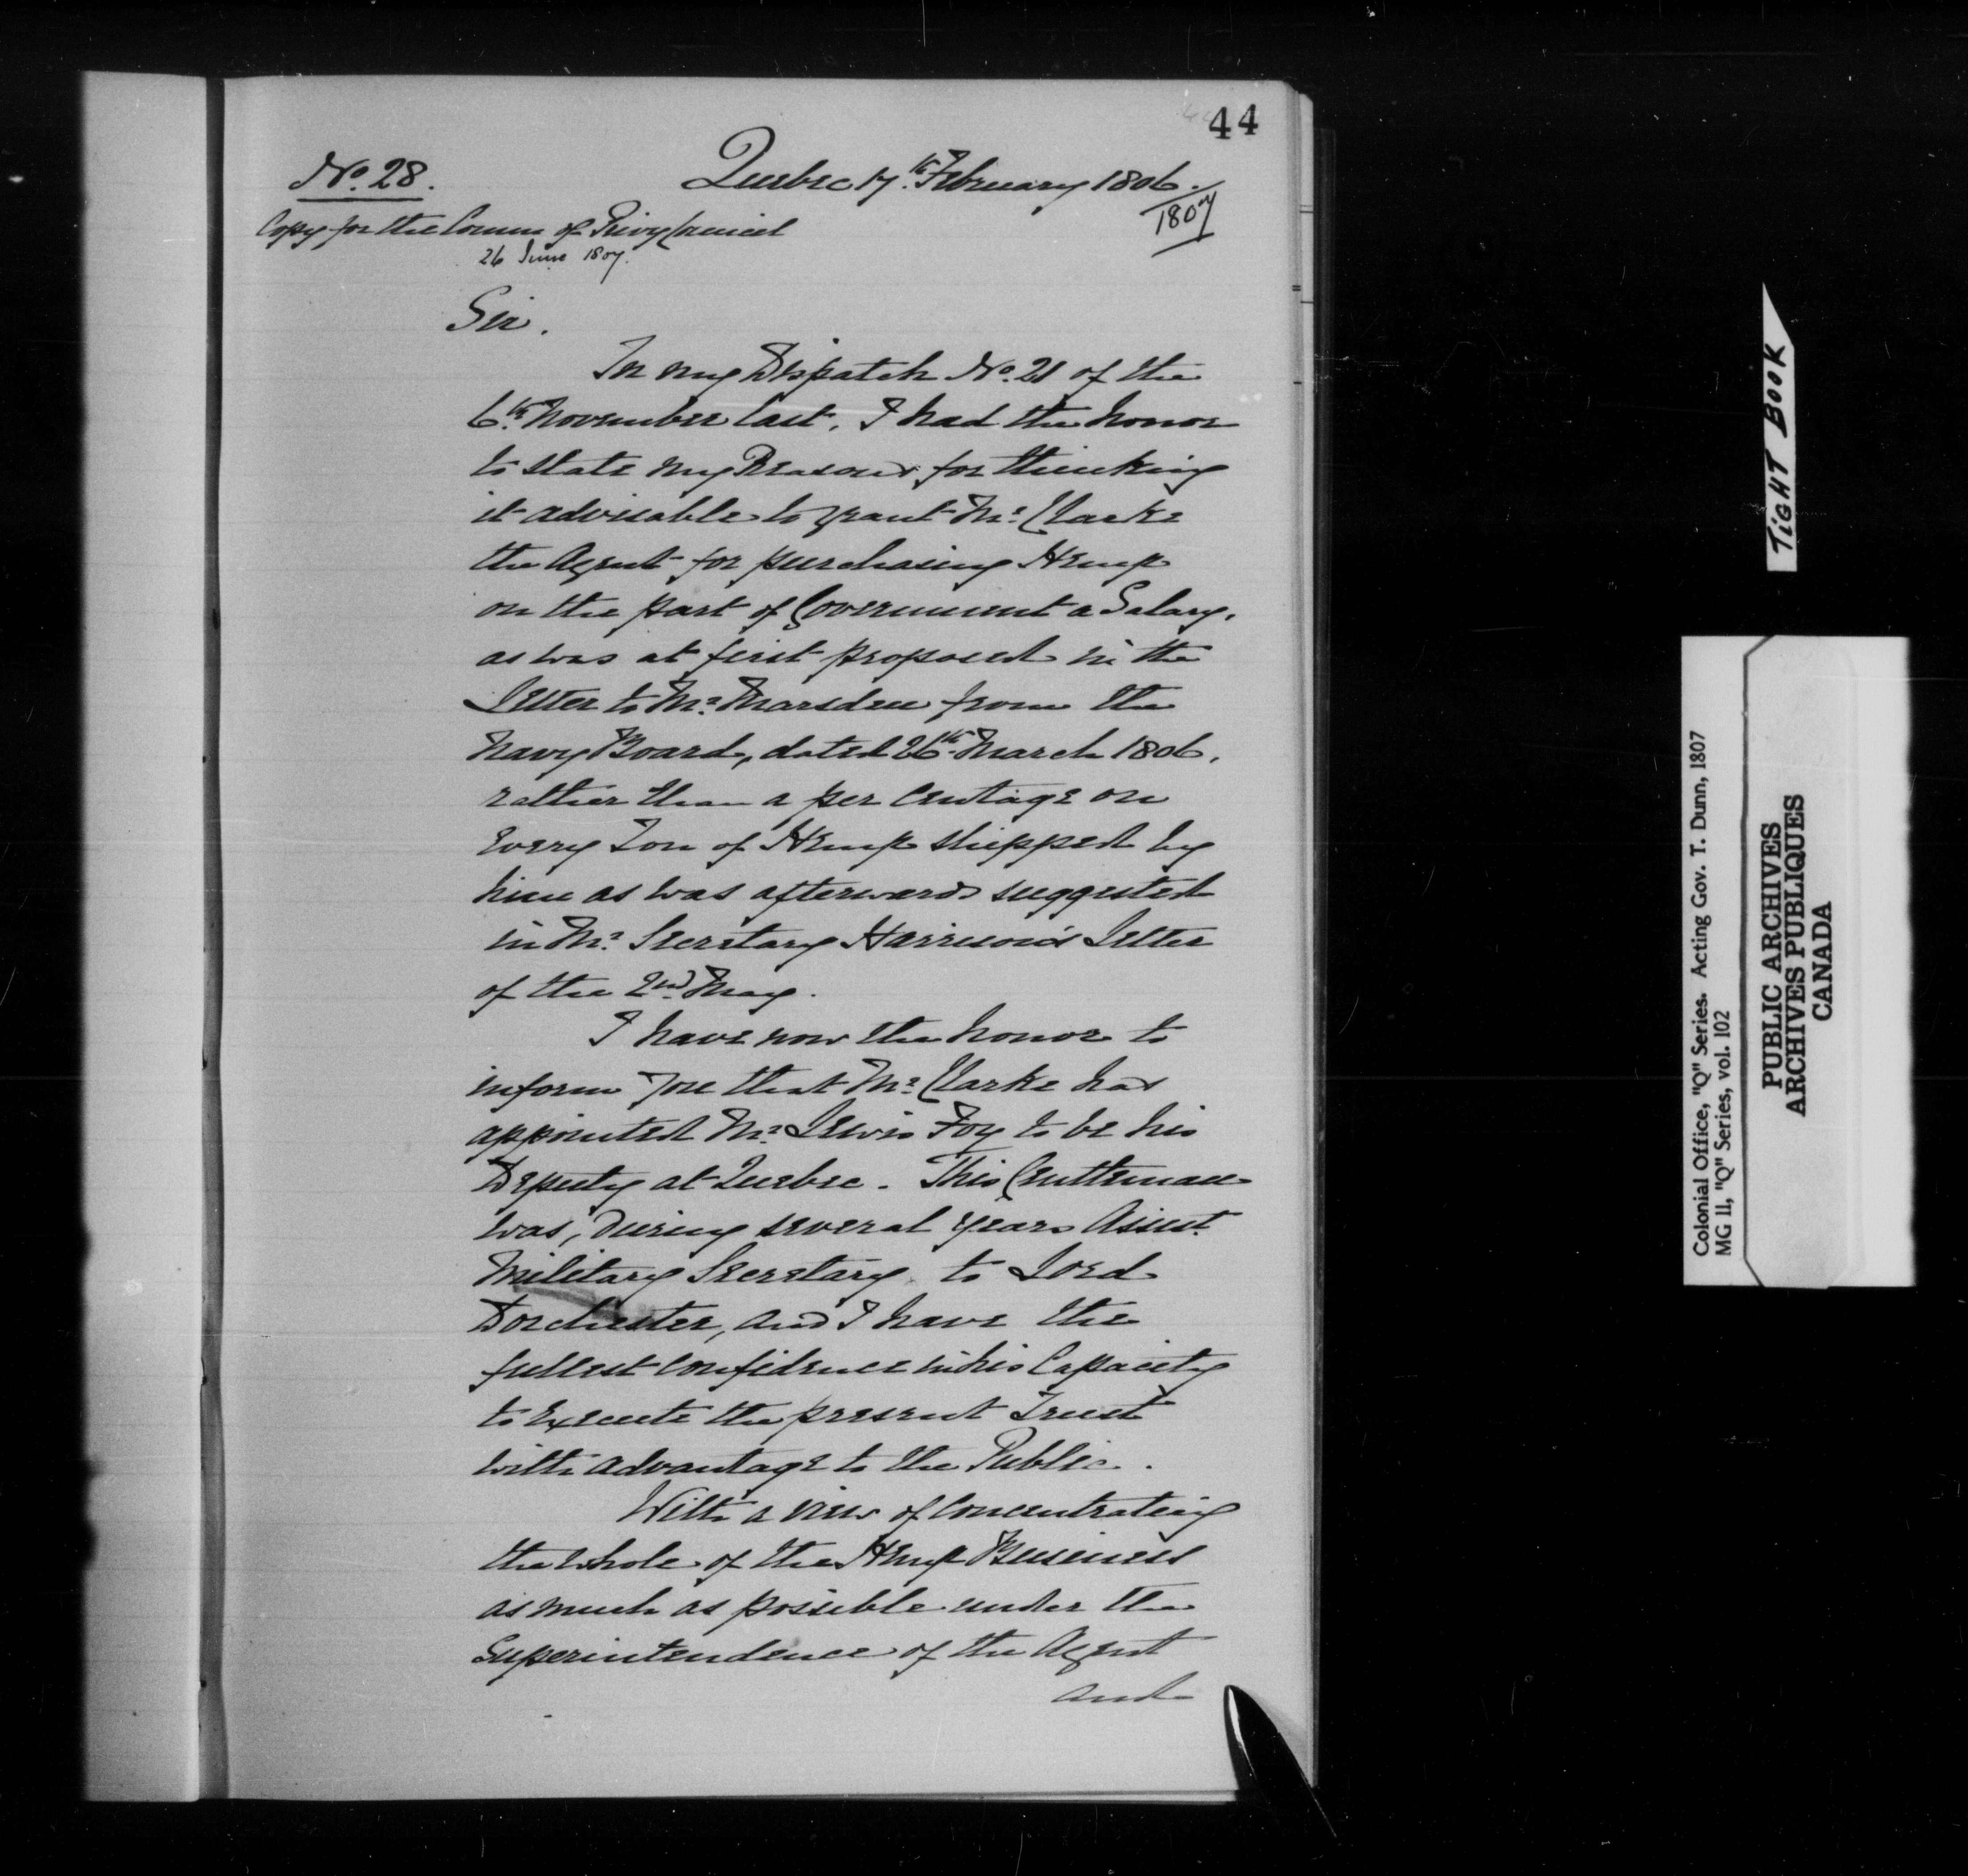 44
No. 28.
Quebec 17th February 1806.
1807
Copy for the Comm of Privy Council
26 June 1807.
Sir.
In my Dispatch No. 21 of the
6th November last, I had the honor
to state my Reasons for thinking
it advisable to grant Mr. Clarke
the Agent for purchasing Hemp
on the part of Government a Salary,
as was at first proposed in the
Letter to Mr. Marsden from the
Navy Board, dated 26th March 1806,
rather than a per centage on
every Ton of Hemp shipped by
him as was afterwards suggested
in Mr. Secretary Harrison's Letter
of the 2nd May.
I have now the honor to
inform you that Mr. Clarke has
appointed Mr. Lewis Foy to be his
Deputy at Quebec. This Gentleman
was, during several years Assist.
Military Secretary to Lord
Dorchester, and I have the
fullest confidence in his Capacity
to Execute the present Trust
with advantage to the Public.
With a view of Concentrating
the whole of the Hemp Business
as much as possible under the
Superintendence of the Agent
and
TIGHT BOOK
Colonial Office, "Q" Series. Acting Gov. T. Dunn, 1807
MG 11, "Q" Series, vol. 102
PUBLIC ARCHIVES
ARCHIVES PUBLIQUES
CANADA